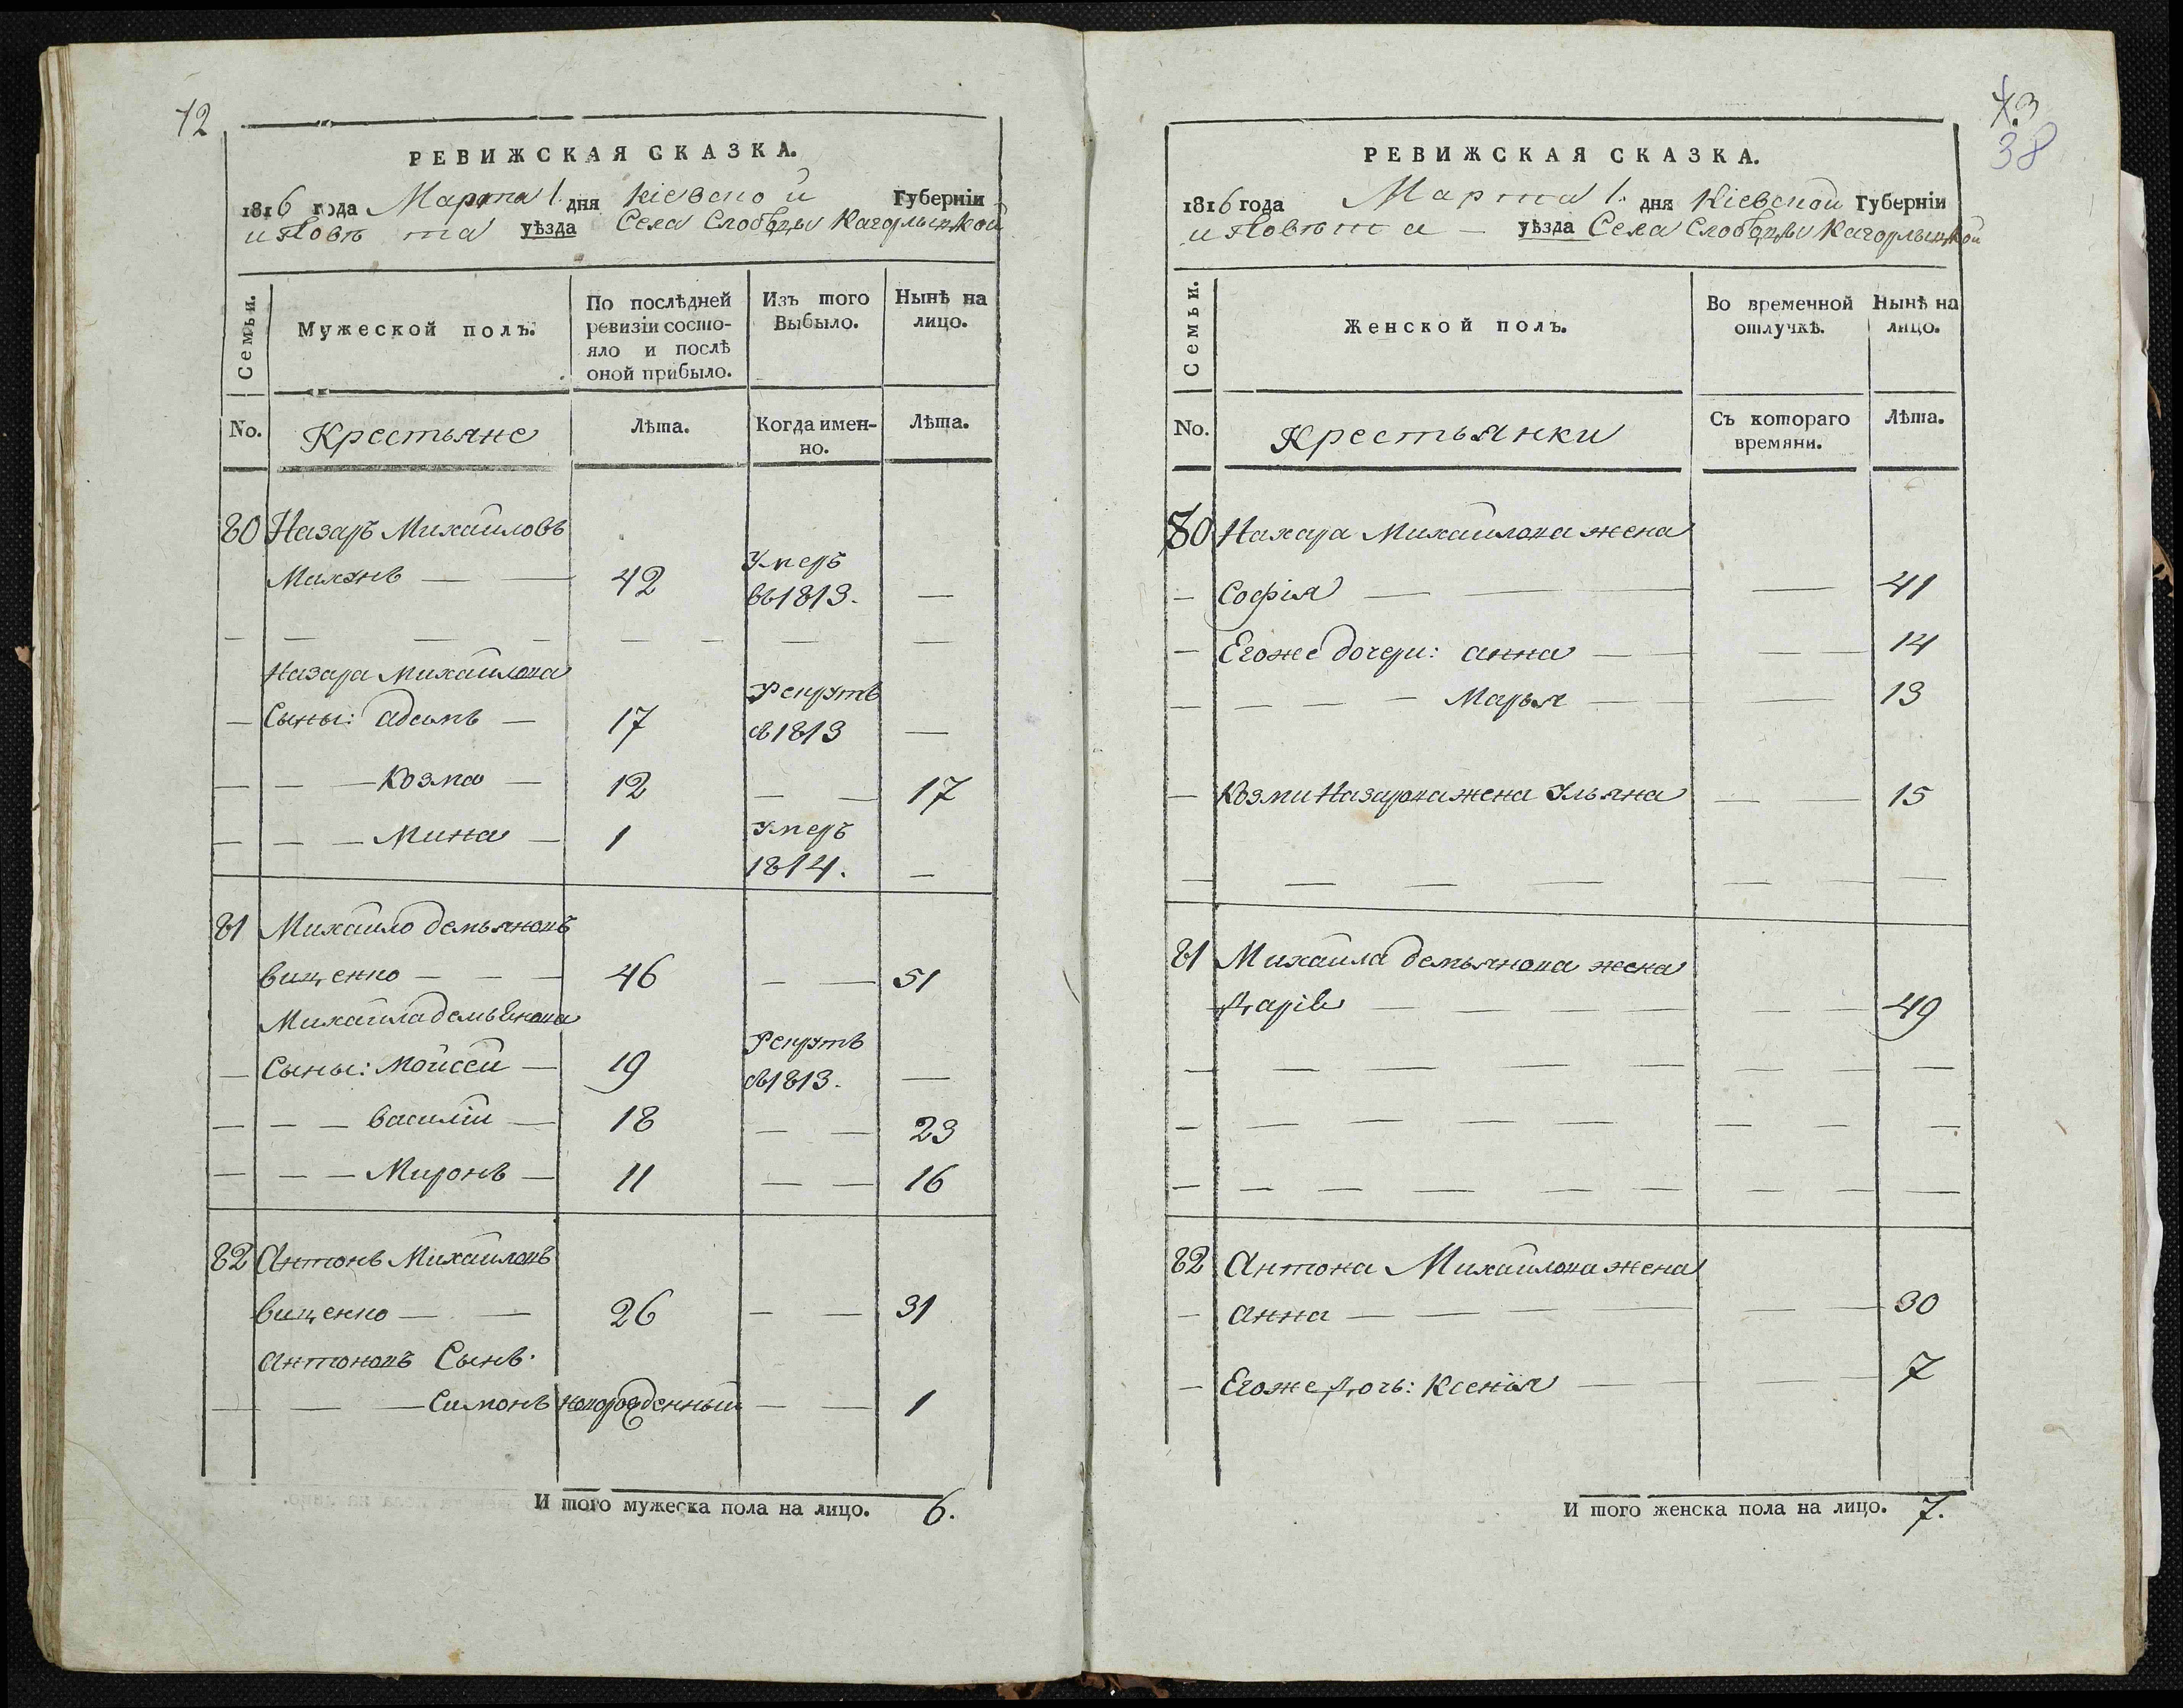 72
РЕВИЖСКАЯ СКАЗКА.
1816 года Марта 1. дня Кіевской Губерніи
и Повѣта уѣзда Села Слободы Кагорлыцкой
Семьи.
Мужеской полъ.
По послѣдней ревизіи состояло и послѣ оной прибыло.
Изъ того Выбыло.
Нынѣ на лицо.
No.
Крестьяне
Лѣта.
Когда именно.
Лѣта.
80 Назаръ Михайловъ
42 Умеръ
въ 1813. —
Назара Михайлова
— Сыны: адамъ — 17 Рекрутъ
въ 1813 —
— — — Козма — 12 — — 17
— — — Мина — 1 Умеръ
1814. —
81 Михайло демьяновъ
вищенко — — — 46 — — 51
Михайла демьянова
— Сыны: Мойсей — 19 Рекрутъ
въ 1813. —
— — — василій — 18 — — 23
— — — Миронъ — 11 — — 16
82 Антонъ Михайловъ
вищенко — — 26 — — 31
антоновъ Сынъ.
— — — Симонъ новорожденный — — 1
И того мужеска пола на лицо. 6.
43
38
РЕВИЖСКАЯ СКАЗКА.
1816 года Марта 1. дня Кіевской Губерніи
и Повѣта — уѣзда Села Слободы Кагорлыцкой
Семьи.
Женской полъ.
Во временной отлучкѣ.
Нынѣ на лицо.
No.
Крестьянки
Съ котораго времяни.
Лѣта.
80 Назара Михайлова жена
— Софія — — — — 41
— Егоже дочери: анна — — — — 14
— — — — — Марья — — — 13
— Козми Назарова жена Ульяна — — 15
81 Михайла демьянова жена
Дарія — — — — — — 49
82 Антона Михайлова жена
— анна — — — — — — 30
— Егоже дочь: Ксенія — — — — 7
И того женска пола на лицо. 7.